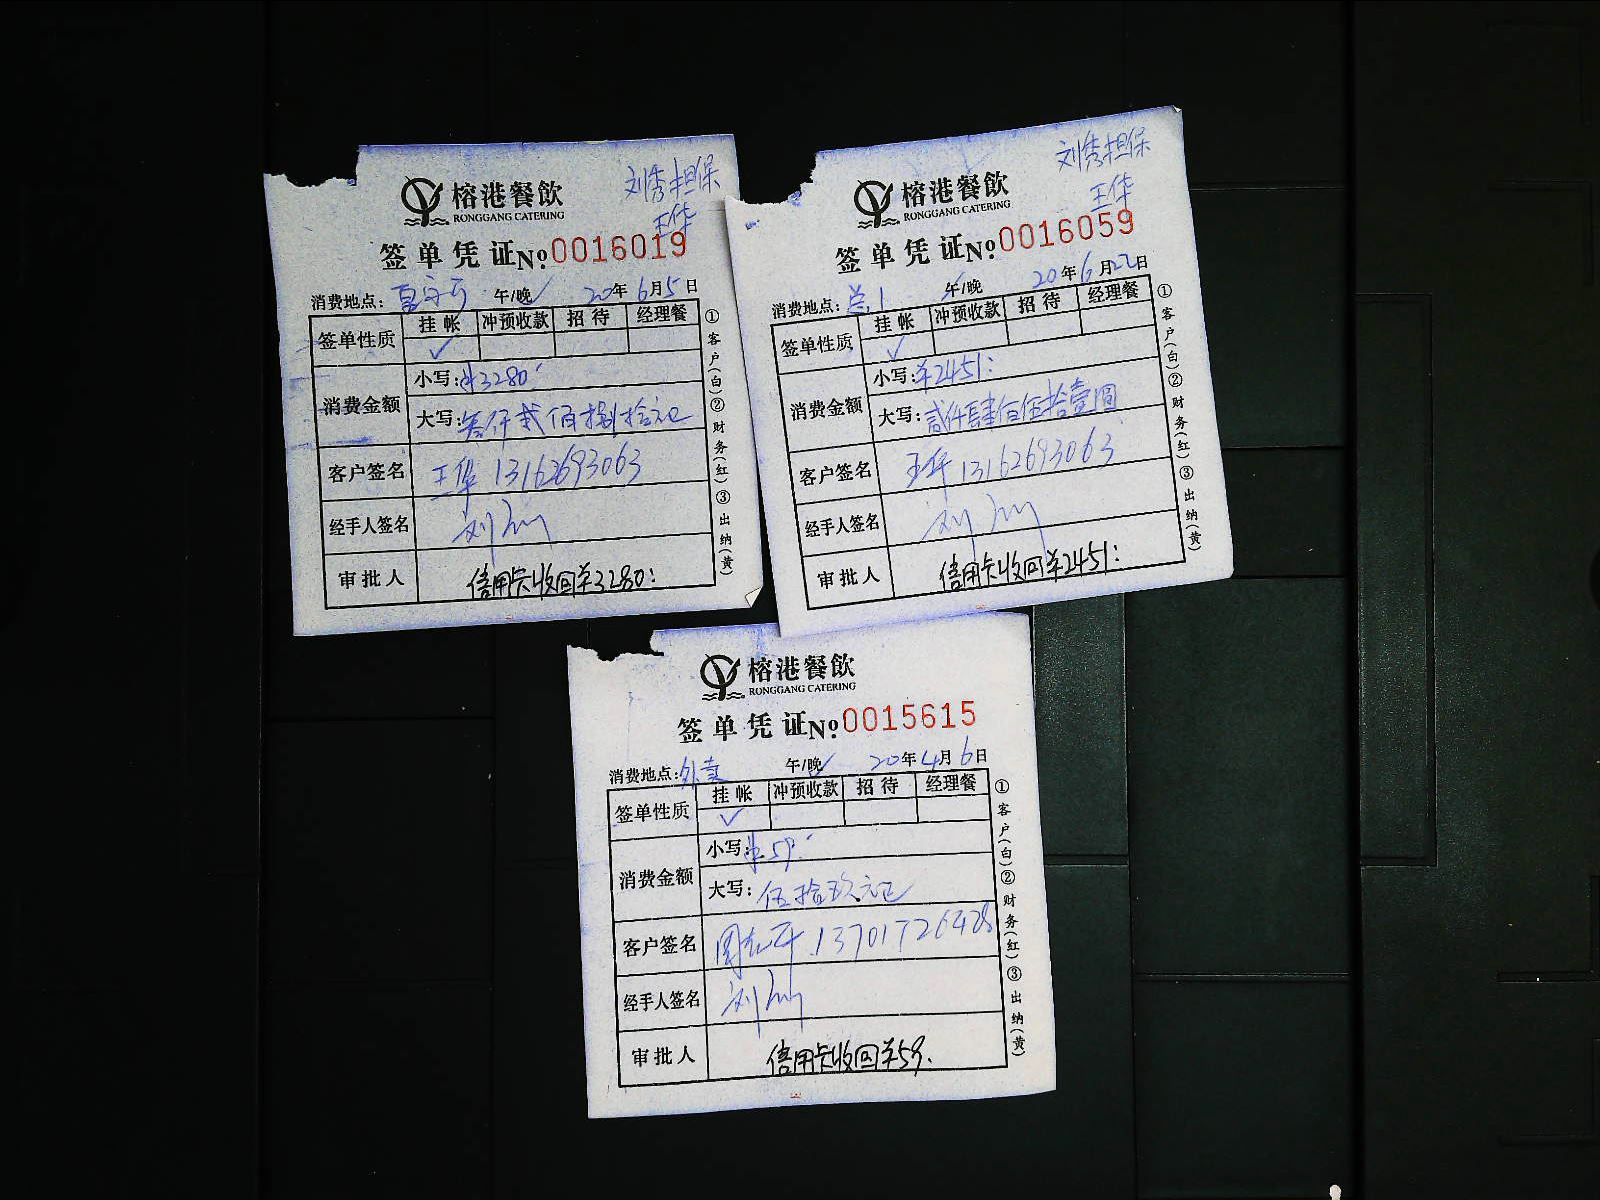 刘秀担保
王华
榕港餐飲
RONGGANG CATERING
签单凭证 No. 0016019
消费地点： 午/晚✓ 20年6月5日
签单性质 挂帐 冲预收款 招待 经理餐
✓
消费金额 小写:¥3280.
大写:叁仟贰佰捌拾元正
客户签名 王华 13162693063
经手人签名 刘
审批人 信用卡收回¥3280:
①客户(白)②财务(红)③出纳(黄)
刘秀担保
王华
榕港餐飲
RONGGANG CATERING
签单凭证 No. 0016059
消费地点:总1 午/晚 20年6月22日
签单性质 挂帐 冲预收款 招待 经理餐
✓
消费金额 小写:¥2451:
大写:贰仟肆佰伍拾壹圆
客户签名 王华 13162693063
经手人签名 刘
审批人 信用卡收回¥2451:
①客户(白)②财务(红)③出纳(黄)
榕港餐飲
RONGGANG CATERING
签单凭证 No. 0015615
消费地点:外卖 午/晚✓ 20年4月6日
签单性质 挂帐 冲预收款 招待 经理餐
✓
消费金额 小写:¥59.
大写:伍拾玖元正
客户签名 13701726428
经手人签名 刘
审批人 信用卡收回¥59.
①客户(白)②财务(红)③出纳(黄)